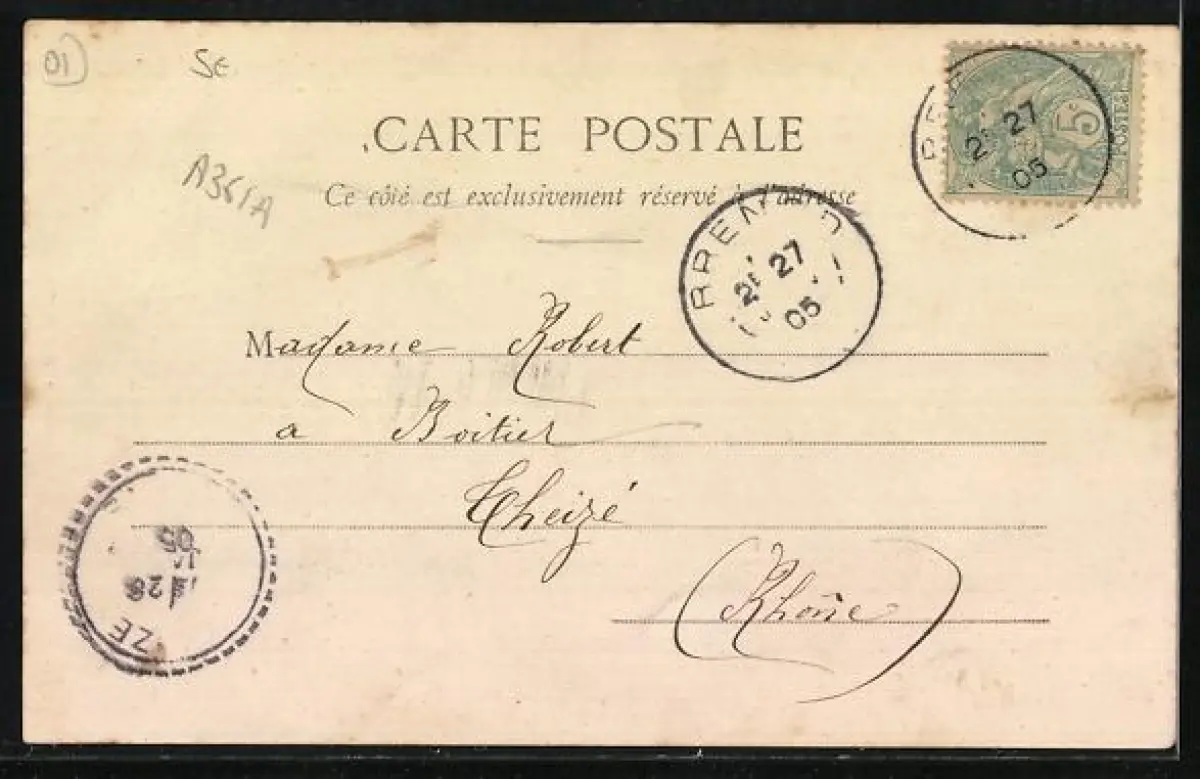 01
Se
CARTE POSTALE
Ce côté est exclusivement réservé à l'adresse
A361A
5c
POSTES
27
05
27
05
Madame Robert
a Boitier
Theizé
(Rhône)
28
05
ZE